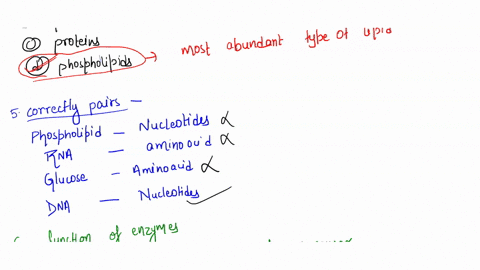 proteins
phospholipids → most abundant type of lipid
5. correctly pairs –
Phospholipid – Nucleotides
RNA – aminoacid
Glucose – Aminoacid
DNA – Nucleotides
function of enzymes